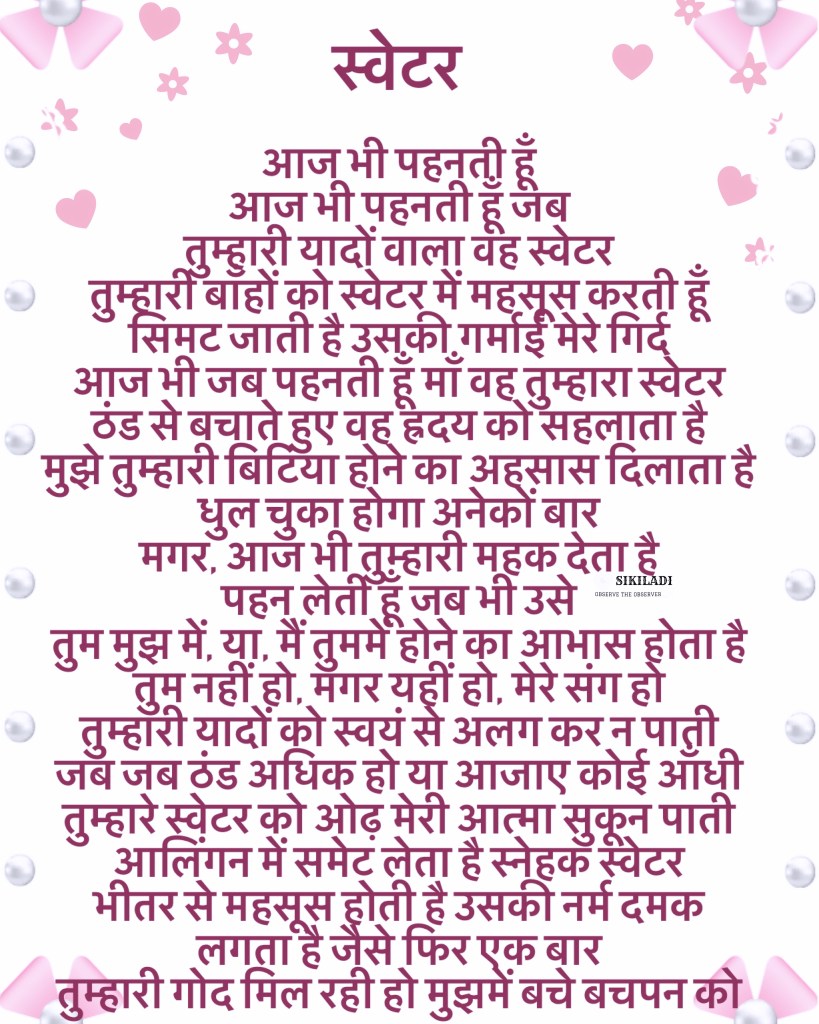 स्वेटर
आज भी पहनती हूँ
आज भी पहनती हूँ जब
तुम्हारी यादों वाला वह स्वेटर
तुम्हारी बाँहों को स्वेटर में महसूस करती हूँ
सिमट जाती है उसकी गर्माई मेरे गिर्द
आज भी जब पहनती हूँ माँ वह तुम्हारा स्वेटर
ठंड से बचाते हुए वह हृदय को सहलाता है
मुझे तुम्हारी बिटिया होने का अहसास दिलाता है
धुल चुका होगा अनेकों बार
मगर, आज भी तुम्हारी महक देता है
SIKILADI
OBSERVE THE OBSERVER
पहन लेती हूँ जब भी उसे
तुम मुझ में, या, मैं तुममें होने का आभास होता है
तुम नहीं हो, मगर यहीं हो, मेरे संग हो
तुम्हारी यादों को स्वयं से अलग कर न पाती
जब जब ठंड अधिक हो या आजाए कोई आँधी
तुम्हारे स्वेटर को ओढ़ मेरी आत्मा सुकून पाती
आलिंगन में समेट लेता है स्नेहक स्वेटर
भीतर से महसूस होती है उसकी नर्म दमक
लगता है जैसे फिर एक बार
तुम्हारी गोद मिल रही हो मुझमें बचे बचपन को